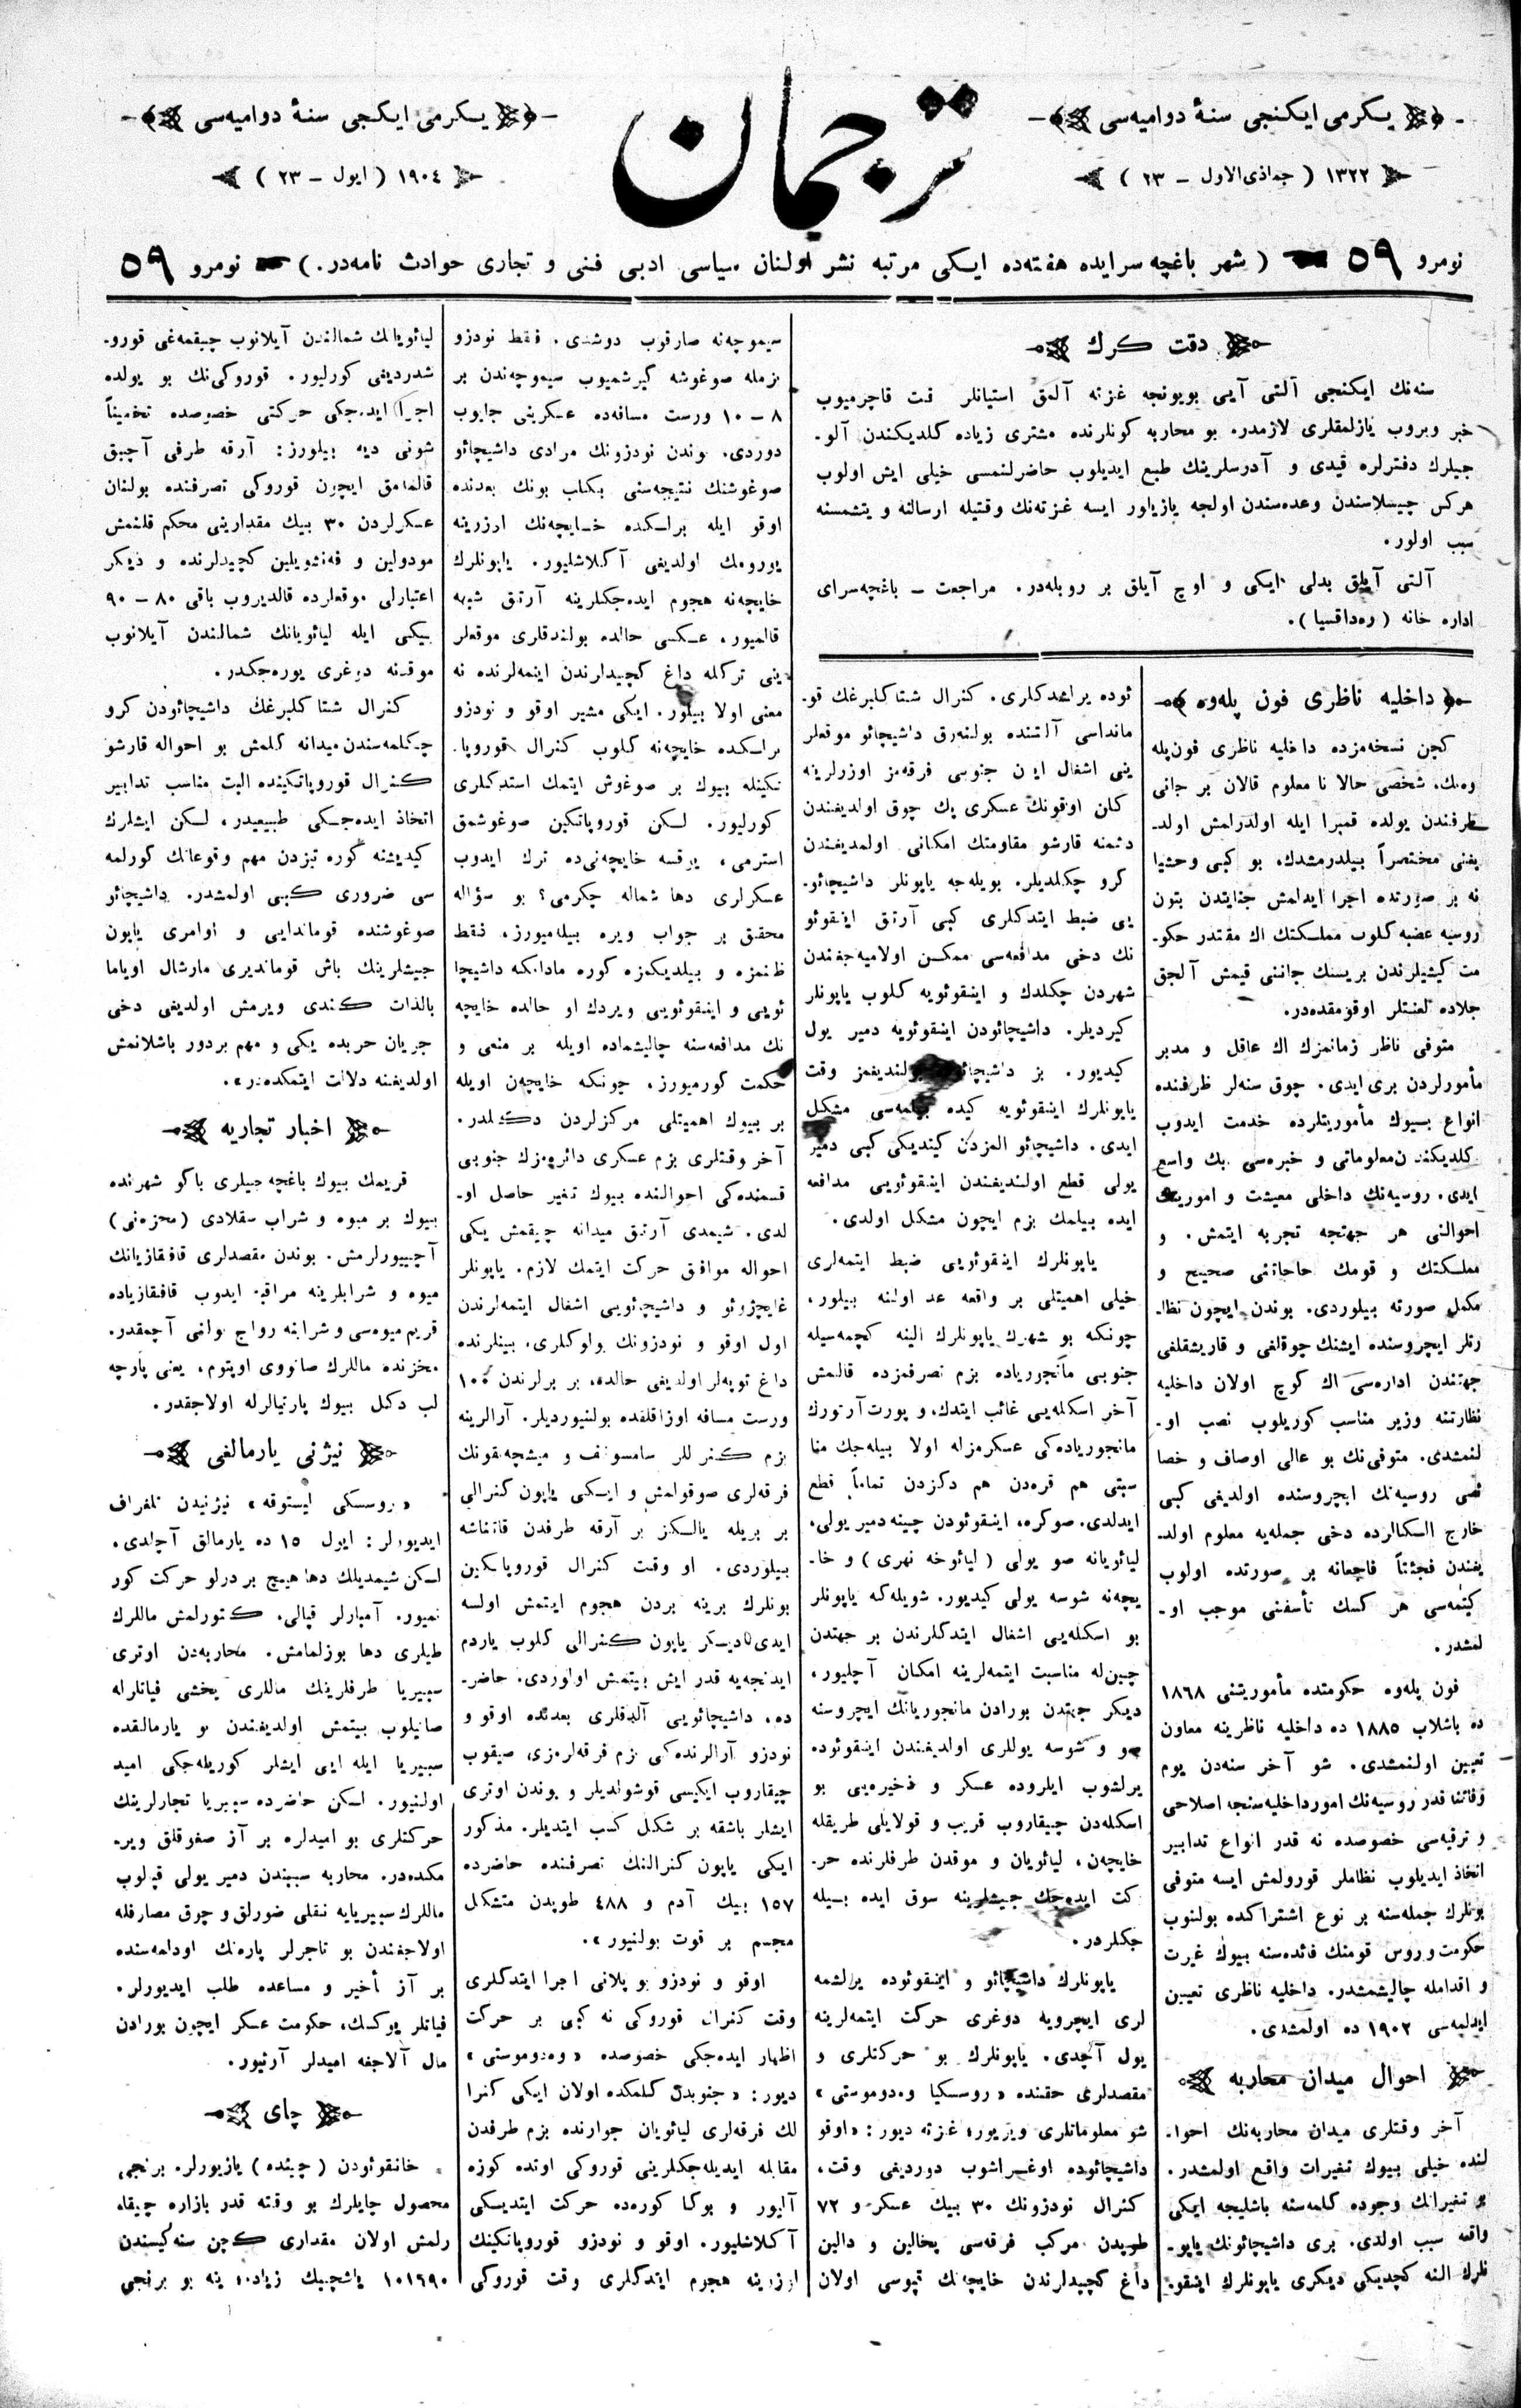 ترجمان
يكرمی ايكنجی سنۀ دواميه‌سی
١٣٢٢ ( جماذی‌الاول - ٢٣ )
يكرمی ايكنجی سنۀ دواميه‌سی
١٩٠٤ ( ايول - ٢٣ )
نومرو ٥٩ ( شهر باغچه سرايده هفته‌ده ايكی مرتبه نشر اولنان سياسی ادبی فنی و تجاری حوادث نامه‌در. ) نومرو ٥٩
دقت كرك
سنه‌نك ايكنجی آلتی آيی بويونجه غزته آلمق استيانلر قت قاچرميوب
خبر ويروب يازلمقلری لازمدر. بو محاربه كونلرنده مشتری زياده كلديكندن آلو-
جيلرك دفترلره قيدی و آدرسلرينك طبع ايديلوب حاضرلنمسی خيلی ايش اولوب
هركس چيسلاسندن وعده‌سندن اولجه يازياور ايسه غزته‌نك وقتيله ارسالنه و يتشمسنه
سبب اولور.
آلتی آيلق بدلی ايكی و اوچ آيلق بر روبله‌در. مراجعت - باغچه‌سرای
اداره خانه ( ره‌داقسيا ).
داخليه ناظری فون پله‌وه
كچن نسخه‌مزده داخليه ناظری فون‌پله
وه‌نك، شخصی حالا نا معلوم قالان بر جانی
طرفندن يولده قمبرا ايله اولدرلمش اولد-
يغنی مختصراً بيلدرمشدك، بو كبی وحشيا
نه بر صورتده اجرا ايدلمش جنايتدن بتون
روسيه غضبه كلوب مملكتك اك مقتدر حكو-
مت كيشيلرندن بريسنك جاننی قيمش آلچق
جلاده لعنتلر اوقومقده‌در.
متوفی ناظر زمانمزك اك عاقل و مدبر
مأمورلردن بری ايدی. چوق سنه‌لر ظرفنده
انواع بيوك مأموريتلرده خدمت ايدوب
كلديكندن معلوماتی و خبره‌سی بك واسع
ايدی. روسيه‌نك داخلی معيشت و امورينك
احوالنی هر جهتجه تجربه ايتمش. و
مملكتك و قومك حاجاتنی صحيح و
مكمل صورته بيلوردی. بوندن ايچون نظا-
رتلر ايچروسنده ايشنك چوقلغی و قاريشقلغی
جهتندن اداره‌سی اك كوچ اولان داخليه
نظارتنه وزير مناسب كوريلوب نصب او-
لنمشدی. متوفی‌نك بو عالی اوصاف و خصا
ئصی روسيه‌نك ايچروسنده اولديغی كبی
خارج السكالرده دخی جمله‌يه معلوم اولد-
يغندن فجئتاً فاجعانه بر صورتده اولوب
كيتمه‌سی هر كسك تأسفنی موجب او-
لمشدر.
فون پله‌وه حكومتده مأموريتنی ١٨٦٨
ده باشلاب ١٨٨٥ ده داخليه ناظرينه معاون
تعيين اولنمشدی. شو آخر سنه‌دن يوم
وفاتنا قدر روسيه‌نك امور داخليه سنجه اصلاحی
و ترقيه‌سی خصوصده نه قدر انواع تدابير
اتخاذ ايديلوب نظاملر قورولمش ايسه متوفی
بونلرك جمله‌سنه بر نوع اشتراكده بولنوب
حكومت و روس قومنك فائده‌سنه بيوك غيرت
و اقدامله چاليشمشدر. داخليه ناظری تعيين
ايدلمه‌سی ١٩٠٢ ده اولمشدی.
احوال ميدان محاربه
آخر وقتلری ميدان محاربه‌نك احوا-
لنده خيلی بيوك تغيرات واقع اولمشدر.
بو تغيراتك وجوده كلمه‌سنه باشليجه ايكی
واقعه سبب اولدی. بری داشيچائونك ياپو-
نلرك النه كچديكی ديكری ياپونلرك اينقو-
ئوده يرلشدكلری. كنرال شتاكلبرغك قو-
مانداسی آلتنده بولنه‌رق داشيچائو موقعلر
ينی اشغال ايدن جنوبی فرقه‌مز اوزرلرينه
كلن اوقونك عسكری پك چوق اولديغندن
دشمنه قارشو مقاومتك امكانی اولمديغندن
كرو چكلديلر. بويله‌جه ياپونلر داشيچائو-
يی ضبط ايتدكلری كبی آرتق اينقوئو
نك دخی مدافعه‌سی ممكن اولاميه‌جغندن
شهردن چكلدك و اينقوئويه كلوب ياپونلر
كيرديلر. داشيچائودن اينقوئويه دمير يول
كيديور. بز بولنديغمز وقت
ياپونلرك اينقوئويه كيده بيلمه‌سی مشكل
ايدی. داشيچائو المزدن كيتديكی كبی دمير
يولی قطع اولنديغندن اينقوئويی مدافعه
ايده بيلمك بزم ايچون مشكل اولدی.
ياپونلرك اينقوئويی ضبط ايتمه‌لری
خيلی اهميتلی بر واقعه عد اولنه بيلور.
چونكه بو شهرك ياپونلرك الينه كچمه‌سيله
جنوبی مانجورياده بزم تصرفمزده قالمش
آخر اسكله‌يی غائب ايتدك، و پورت آرتورك
مانجورياده‌كی عسكرمزله اولا بيله‌جك منا
سبتی هم قره‌دن هم دكزدن تماماً قطع
ايدلدی. صوكره، اينقوئودن چينه دمير يولی،
ليائويانه صو يولی ( ليائوخه نهری ) و خا-
يچه‌نه شوسه يولی كيديور. شويله‌كه ياپونلر
بو اسكله‌يی اشغال ايتدكلرندن بر جهتدن
چين‌له مناسبت ايتمه‌لرينه امكان آچليور،
ديكر جهتدن بورادن مانجوريانك ايچروسنه
صو و شوسه يوللری اولديغندن اينقوئوده
يرلشوب ايلروده عسكر و ذخيره‌يی بو
اسكله‌دن چيقاروب قريب و قولايلی طريقله
خايچه‌ن، ليائويان و موقدن طرفلرنده حر-
كت ايده‌جك جيشلرينه سوق ايده بيله
جكلردر.
ياپونلرك داشيچائو و اينقوئوده يرلشمه
لری ايچرويه دوغری حركت ايتمه‌لرينه
يول آچدی. ياپونلرك بو حركتلری و
مقصدلری حقنده «روسسكيا وه‌دوموستی»
شو معلوماتلری ويريور، غزته ديور: «اوقو
داشيچائوده اوغراشوب دورديغی وقت،
كنرال نودزونك ٣٠ بيك عسكر و ٧٢
طوپدن مركب فرقه‌سی پخالين و دالين
داغ كچيدلرندن خايچه‌نك قپوسی اولان
سيموچه‌نه صارقوب دوشدی. فقط نودزو
بزمله صوغوشه كيرشميوب سيموچه‌ندن بر
٨ - ١٠ ورست مسافه‌ده عسكرينی جايوب
دوردی. بوندن نودزونك مرادی داشيچائو
صوغوشنك نتيجه‌سنی بكلب بونك بعدنده
اوقو ايله براسكده خايچه‌نك اوزرينه
يورومك اولديغی آكلاشليور. ياپونلرك
خايچه‌نه هجوم ايده‌جكلرينه آرتق شبهه
قالميور. عكسی حالده بولندقلری موقعلر
ينی تركله داغ كچيدلرندن اينمه‌لرنده نه
معنی اولا بيلور. ايكی مشير اوقو و نودزو
براسكده خايچه‌نه كلوب كنرال قوروپا-
تكينله بيوك بر صوغوش ايتمك استدكلری
كورليور. لكن قوروپاتكين صوغوشمق
استرمی، يوقسه خايچه‌نی‌ده ترك ايدوب
عسكرلری دها شماله چكرمی؟ بو سؤاله
محقق بر جواب ويره بيله‌ميورز. فقط
ظنمزه و بيلديكمزه كوره مادامكه داشيچا
ئويی و اينقوئويی ويردك او حالده خايچه
نك مدافعه‌سنه چاليشماده اويله بر منعی و
حكمت كورميورز. چونكه خايچه‌ن اويله
بر بيوك اهميتلی مركزلردن دكلدر.
آخر وقتلری بزم عسكری دائره‌مزك جنوبی
قسمنده‌كی احوالنده بيوك تغير حاصل او-
لدی. شيمدی آرتق ميدانه چيقمش يكی
احواله موافق حركت ايتمك لازم. ياپونلر
غايچژوئو و داشيچائويی اشغال ايتمه‌لرندن
اول اوقو و نودزونك بولوكلری، بينلرنده
داغ توپه‌لر اولديغی حالده، بر برلرندن ١٠٠
ورست مسافه اوزاقلقده بولنيورديلر. آرالرينه
بزم كنراللر سامسونف و ميشچه‌نقونك
فرقه‌لری صوقولمش و ايكی ياپون كنرالی
بر بريله يالكز بر آرقه طرفدن قاتناشه
بيلوردی. او وقت كنرال قوروپاتكين
بونلرك برينه بردن هجوم ايتمش اولسه
ايدی ديكر ياپون كنرالی كلوب ياردم
ايدنجه‌يه قدر ايش بيتمش اولوردی. حاضر-
ده، داشيچائويی آلدقلری بعدنده اوقو و
نودزو آرالرنده‌كی بزم فرقه‌لرمزی صيقوب
چيقاروب ايكيسی قوشولديلر و بوندن اوتری
ايشلر باشقه بر شكل كسب ايتديلر. مذكور
ايكی ياپون كنرالنك تصرفنده حاضرده
١٥٧ بيك آدم و ٤٨٨ طوپدن متشكل
مجسم بر قوت بولنيور».
اوقو و نودزو بو پلانی اجرا ايتدكلری
وقت كنرال قوروكی نه كبی بر حركت
اظهار ايده‌جكی خصوصده «وه‌دوموستی»
ديور: «جنوبدن كلمكده اولان ايكی كنرا
لك فرقه‌لری ليائويان جوارنده بزم طرفدن
مقابله ايديله‌جكلرينی قوروكی اوتده كوزه
آليور و بوكا كوره‌ده حركت ايتديكی
آكلاشليور. اوقو و نودزو قوروپاتكينك
اوزرينه هجوم ايتدكلری وقت قوروكی
ليائويانك شمالندن آيلانوب چيقمه‌غی قورو-
شدرديغی كورليور. قوروكی‌نك بو يولده
اجرا ايده‌جكی حركتی خصوصده تخميناً
شونی ديه بيلورز: آرقه طرفی آچيق
قالمامق ايچون قوروكی تصرفنده بولنان
عسكرلردن ٣٠ بيك مقدارينی محكم قلنمش
مودولين و فه‌نشويلين كچيدلرنده و ديكر
اعتبارلی موقعلرده قالديروب باقی ٨٠ - ٩٠
بيكی ايله ليائويانك شمالندن آيلانوب
موقدنه دوغری يوره‌جكدر.
كنرال شتاكلبرغك داشيچائودن كرو
چكلمه‌سندن ميدانه كلمش بو احواله قارشو
كنرال قوروپاتكينده البت مناسب تدابير
اتخاذ ايده‌جكی طبيعيدر، لكن ايشلرك
كيديشنه كوره تيزدن مهم وقوعاتك كورلمه
سی ضروری كبی اولمشدر. داشيچائو
صوغوشنده قوماندايی و اوامری ياپون
جيشلرينك باش قومانديری مارشال اوياما
بالذات كندی ويرمش اولديغی دخی
جريان حربده يكی و مهم بر دور باشلانمش
اولديغنه دلالت ايتمكده‌در».
اخبار تجاريه
قريمك بيوك باغچه‌جيلری باكو شهرنده
بيوك بر ميوه و شراب سقلادی ( مخزه‌نی )
آچييورلرمش. بوندن مقصدلری قافقازيانك
ميوه و شرابلرينه مراقبه ايدوب قافقازياده
قريم ميوه‌سی و شرابنه رواج يولنی آچمقدر.
مخزنده ماللرك صانووی اوپتوم، يعنی پارچه
لب دكل بيوك پارتيالرله اولاجقدر.
نيژنی يارمالغی
«روسسكی ليستوقه» نيژنيدن تلغراف
ايديورلر: ايول ١٥ ده يارمالق آچلدی.
لكن شيمديلك دها هيچ بر درلو حركت كور
نميور. آمبارلر قپالی. كتورلمش ماللرك
طيلری دها بوزلمامش. محاربه‌دن اوتری
سيبيريا طرفلرينك ماللری يخشی فياتلرله
صاتيلوب بيتمش اولديغندن بو يارمالقده
سيبيريا ايله ايی ايشلر كوريله‌جكی اميد
اولنيور. لكن حاضرده سيبيريا تجارلرينك
حركتلری بو اميدلره بر آز صغوقلق وير-
مكده‌در. محاربه سببندن دمير يولی قپلوب
ماللرك سيبيريايه نقلی ضورلق و چوق مصارفله
اولاجغندن بو تاجرلر پاره‌نك اودامه‌سنده
بر آز تأخير و مساعده طلب ايديورلر.
فياتلر يوكسك، حكومت عسكر ايچون بورادن
مال آلاجغه اميدلر آرتيور.
چای
خانقوئودن ( چينده ) يازيورلر. برنجی
محصول چايلرك بو وقته قدر بازاره چيقا-
رلمش اولان مقداری كچن سنه‌كيسندن
١٠١٦٩٠ ياشچيك زياده. ينه بو برنجی